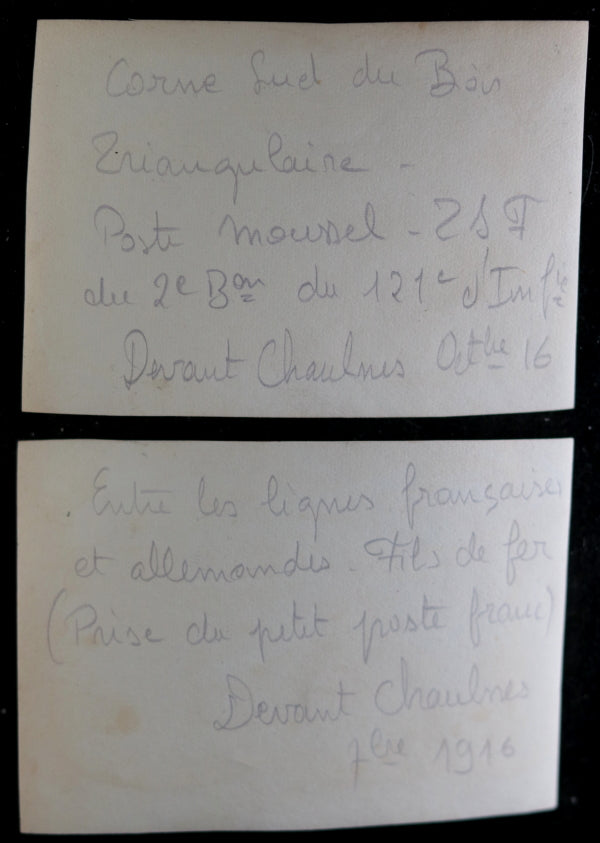 Corne Sud du Bois
Triangulaire -
Poste Moussel - TSF
du 2e Bon du 121e d'Infie
Devant Chaulnes Octbre 16
Entre les lignes françaises
et allemandes. Fils de fer
(Prise du petit poste franc)
Devant Chaulnes
7bre 1916